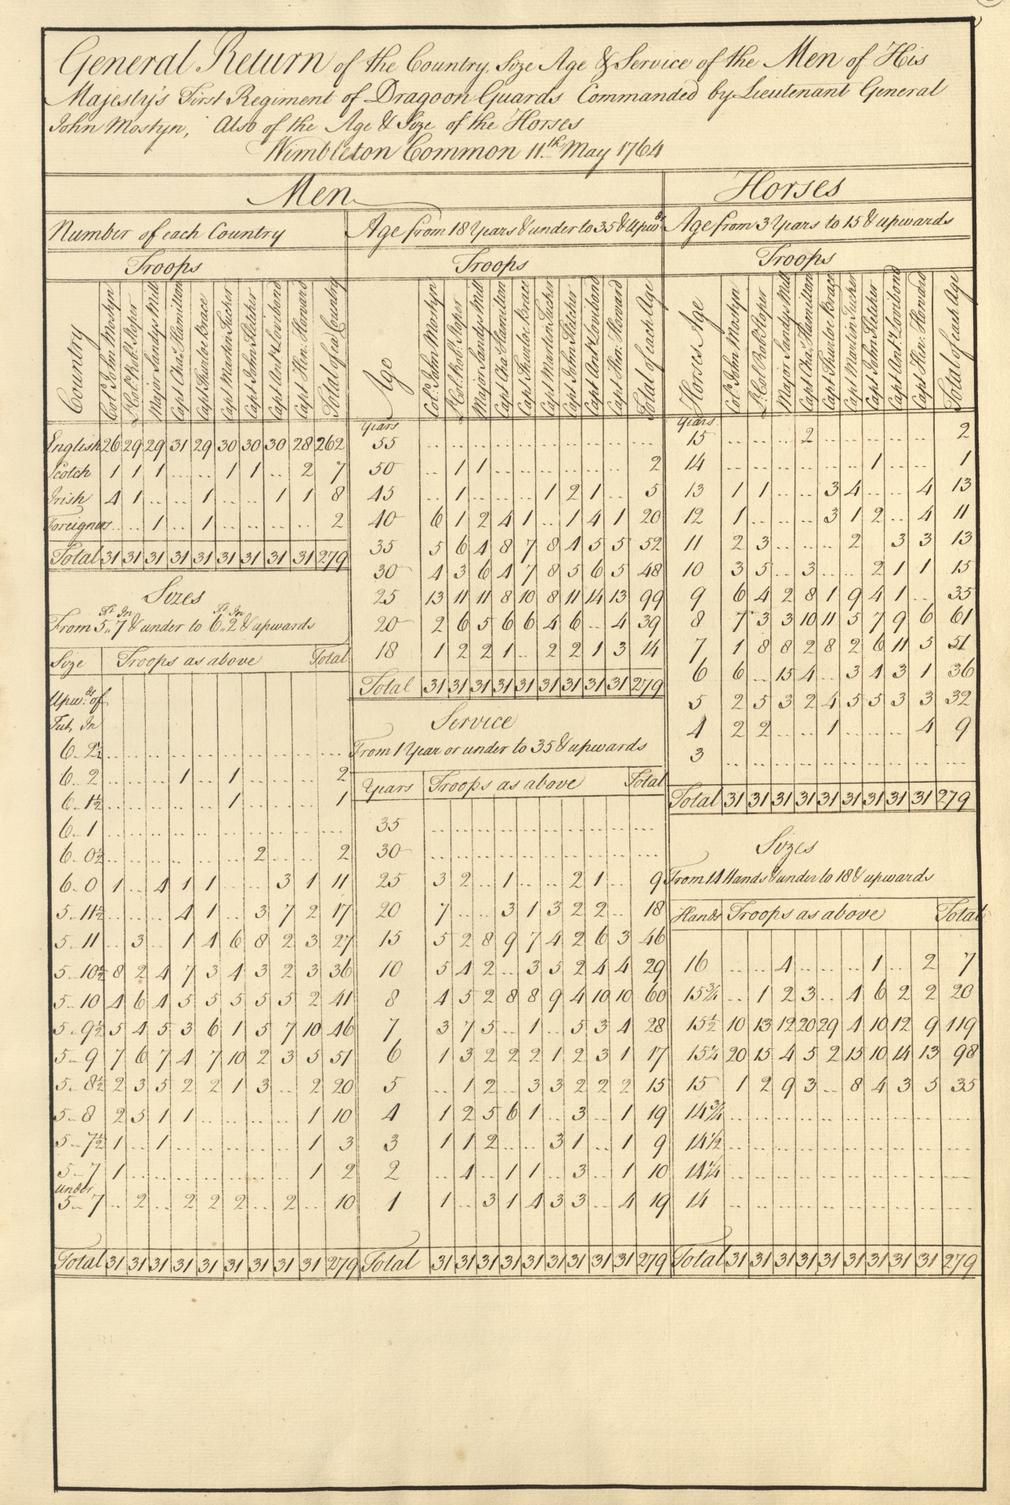 General Return of the Country, Size Age & Service of the Men of His
Majesty's First Regiment of Dragoon Guards Commanded by Lieutenant General
John Mostyn, Also of the Age & Size of the Horses
Wimbleton Common 11th May 1764
Men
Number of each Country
Troops
Country Coll. John Mostyn Major Sandys Mill Capt Chas. Hamilton Capt Martin Tucher Capt Hen: Howard Total of ea: Country
English 26 29 29 31 29 30 30 30 28 262
Scotch 1 1 1 .. .. 1 1 .. 2 7
Irish 4 1 .. .. 1 .. .. 1 1 8
Foreigners .. .. 1 .. 1 .. .. .. .. 2
Total 31 31 31 31 31 31 31 31 31 279
Sizes
From 5..7 & under to 6..2 & upwards
Size Troops as above Total
Upwds. of
Fut, In
6.. 2½ .. .. .. .. .. .. .. .. .. ..
6.. 2 .. .. .. 1 .. 1 .. .. .. 2
6.. 1½ .. .. .. .. .. 1 .. .. .. 1
6.. 1 .. .. .. .. .. .. .. .. .. ..
6.. 0½ .. .. .. .. .. .. 2 .. .. 2
6.. 0 1 .. 4 1 1 .. .. 3 1 11
5.. 11½ .. .. .. 4 1 .. 3 7 2 17
5.. 11 .. 3 .. 1 4 6 8 2 3 27
5.. 10½ 8 2 4 7 3 4 3 2 3 36
5.. 10 4 6 4 5 5 5 5 5 2 41
5.. 9½ 5 4 5 3 6 1 5 7 10 46
5.. 9 7 6 7 4 7 10 2 3 5 51
5.. 8½ 2 3 5 2 2 1 3 .. 2 20
5.. 8 2 5 1 1 .. .. .. .. 1 10
5.. 7½ 1 .. 1 .. .. .. .. .. 1 3
5.. 7 1 .. .. .. .. .. .. .. 1 2
under
5.. 7 .. 2 .. 2 2 2 .. 2 .. 10
Total 31 31 31 31 31 31 31 31 31 279
Age from 18 Years & under to 35 & Upwds.
Troops
Age Coll. John Mostyn Major Sandys Mill Capt Chas. Hamilton Capt Martin Tucher Capt Hen: Howard Total of each Age
Years
55 .. .. .. .. .. .. .. .. .. ..
50 .. 1 1 .. .. .. .. .. .. 2
45 .. 1 .. .. .. 1 2 1 .. 5
40 6 1 2 4 1 .. 1 4 1 20
35 5 6 4 8 7 8 4 5 5 52
30 4 3 6 4 7 8 5 6 5 48
25 13 11 11 8 10 8 11 14 13 99
20 2 6 5 6 6 4 6 .. 4 39
18 1 2 2 1 .. 2 2 1 3 14
Total 31 31 31 31 31 31 31 31 31 279
Service
From 1 Year or under to 35 & upwards
Years Troops as above Total
35 .. .. .. .. .. .. .. .. .. ..
30 .. .. .. .. .. .. .. .. .. ..
25 3 2 .. 1 .. .. 2 1 .. 9
20 7 .. .. 3 1 3 2 2 .. 18
15 5 2 8 9 7 4 2 6 3 46
10 5 4 2 .. 3 5 2 4 4 29
8 4 5 2 8 8 9 4 10 10 60
7 3 7 5 .. 1 .. 5 3 4 28
6 1 3 2 2 2 1 2 3 1 17
5 .. 1 2 .. 3 3 2 2 2 15
4 1 2 5 6 1 .. 3 .. 1 19
3 1 1 2 .. .. 3 1 .. 1 9
2 .. 4 .. 1 1 .. 3 .. 1 10
1 1 .. 3 1 4 3 3 .. 4 19
Total 31 31 31 31 31 31 31 31 31 279
Horses
Age from 3 Years to 15 & upwards
Troops
Horses Age Coll. John Mostyn Major Sandys Mill Capt Chas. Hamilton Capt Martin Tucher Capt Hen: Howard Total of each Age
Years
15 .. .. .. 2 .. .. .. .. .. 2
14 .. .. .. .. .. .. 1 .. .. 1
13 1 1 .. .. 3 4 .. .. 4 13
12 1 .. .. .. 3 1 2 .. 4 11
11 2 3 .. .. .. 2 .. 3 3 13
10 3 5 .. 3 .. .. 2 1 1 15
9 6 4 2 8 1 9 4 1 .. 35
8 7 3 3 10 11 5 7 9 6 61
7 1 8 8 2 8 2 6 11 5 51
6 6 .. 15 4 .. 3 4 3 1 36
5 2 5 3 2 4 5 5 3 3 32
4 2 2 .. .. 1 .. .. .. 4 9
3 .. .. .. .. .. .. .. .. .. ..
Total 31 31 31 31 31 31 31 31 31 279
Sizes
From 14 Hands & under to 18 & upwards
Hands Troops as above Total
16 .. .. 4 .. .. .. 1 .. 2 7
15¾ .. 1 2 3 .. 4 6 2 2 20
15½ 10 13 12 20 29 4 10 12 9 119
15¼ 20 15 4 5 2 15 10 14 13 98
15 1 2 9 3 .. 8 4 3 5 35
14¾ .. .. .. .. .. .. .. .. .. ..
14½ .. .. .. .. .. .. .. .. .. ..
14¼ .. .. .. .. .. .. .. .. .. ..
14 .. .. .. .. .. .. .. .. .. ..
Total 31 31 31 31 31 31 31 31 31 279